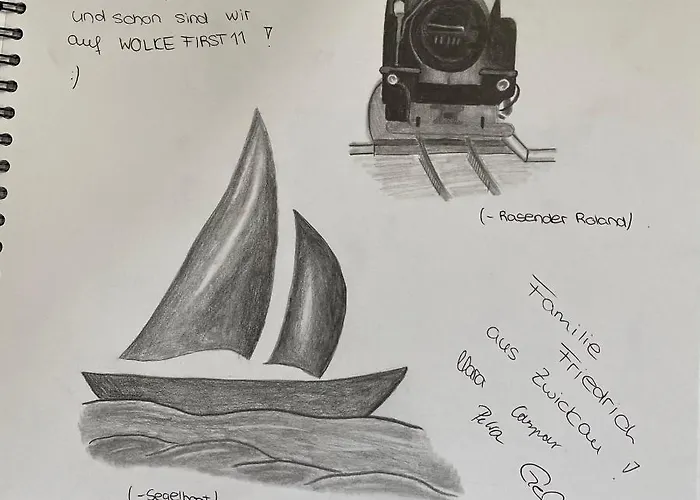 und schon sind wir
auf WOLKE FIRST 11 !
:)
(-Rasender Roland)
Familie
Friedrich
aus Zwickau !
Caspar
Petra
(-Segelboot)